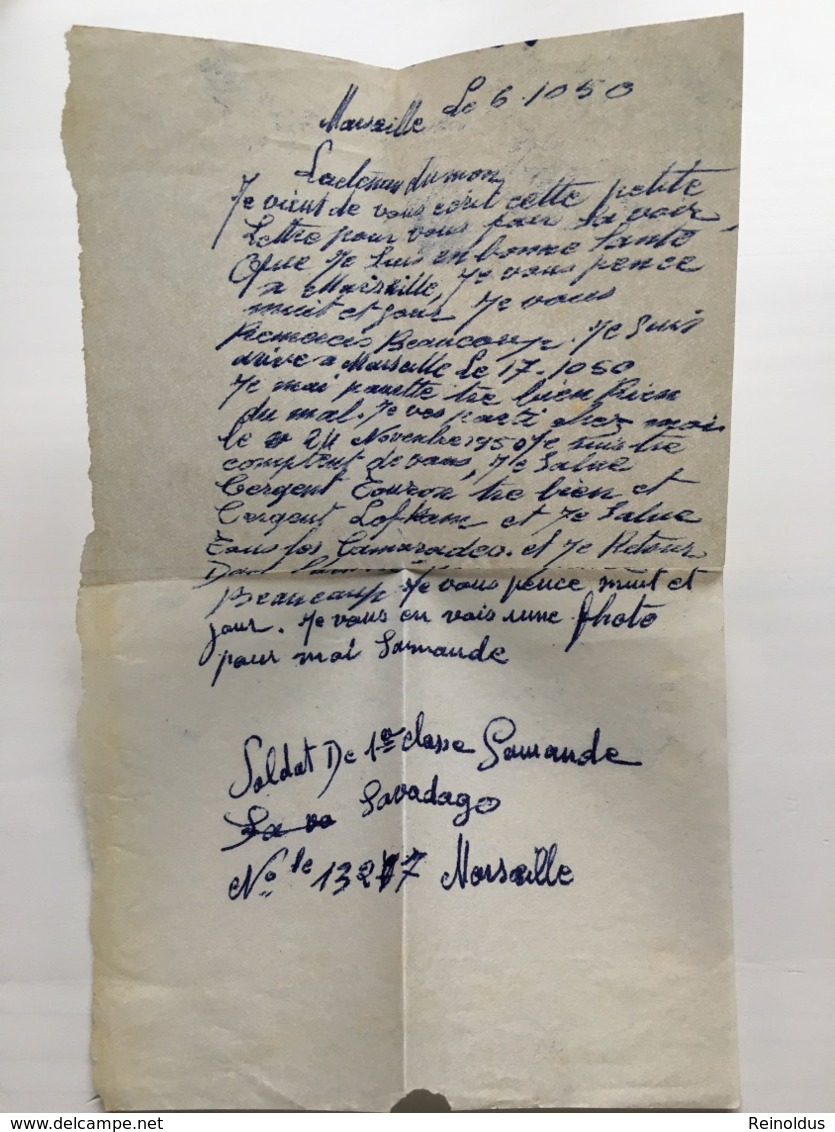 Marseille Le 6.1050
Je vient de vous ecrit cette petite
Lettre pour vous fair Sa voir
Que Je Suis en bonne Santé
a Marseille, Je vous pence
nuit et jour Je vous
Remercis Beaucoup. Je Suis
arive a Marseille Le 17-1050
Je mai tre bien Rien
du mal. Je ves parti chez moi
le 24 Novembre 1950 Je suis tre
comptent de vous, Je Salue
Cergent Touron tre bien et
Cergent et Je Salue
Tous les Camarades. et Je Retour
Beaucoup Je vous pence nuit et
jour. Je vous en vois une Photo
pour moi Samande
Soldat De 1er classe Samande
Savadago
No le 13277 Marseille
Reinoldus